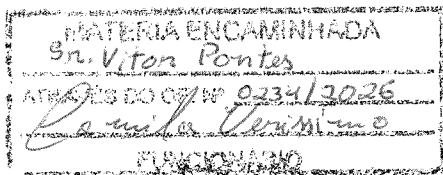 MATERIA ENCAMINHADA
Sr. Vitor Pontes
ATRAVÉS DO OF. Nº 0234/2026
Camila Verissimo
FUNCIONÁRIO